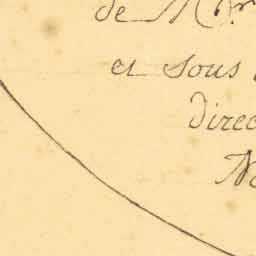 de M
et sous
direc
N